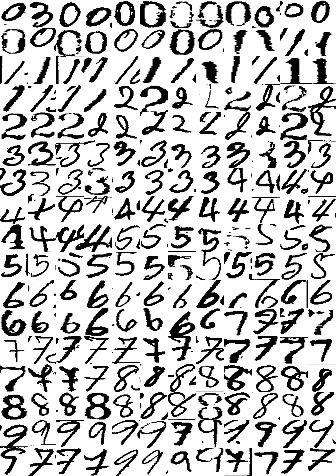 0 3 0 0 0 0 0 0 0 0 0 0
0 0 0 0 0 0 0 0 1 1 1 1
1 1 1 1 1 1 1 1 1 1 1 1
1 1 1 1 2 2 2 2 2 2 2 2
2 2 2 2 2 2 2 2 2 2 2 2
3 3 3 3 3 3 3 3 3 3 3 3
3 3 3 3 3 3 3 3 4 4 4 4
4 4 4 4 4 4 4 4 4 4 4 4
4 4 4 4 5 5 5 5 5 5 5 5
5 5 5 5 5 5 5 5 5 5 5 5
6 6 6 6 6 6 6 6 6 6 6 6
6 6 6 6 6 6 6 6 7 7 7 7
7 7 7 7 7 7 7 7 7 7 7 7
7 7 7 7 8 8 8 8 8 8 8 8
8 8 8 8 8 8 8 8 8 8 8 8
9 9 9 9 9 7 9 9 9 9
5 7 7 9 9 9 9 7 7 7 7